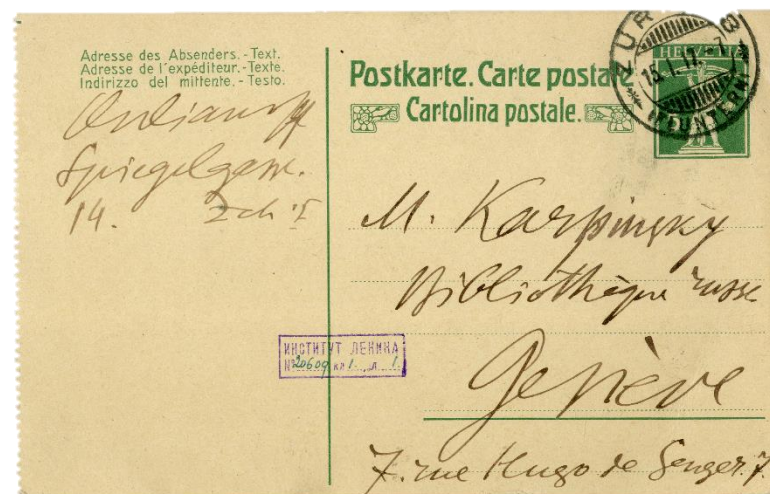 Adresse des Absenders. - Text.
Adresse de l'expéditeur. - Texte.
Indirizzo del mittente. - Testo.
Oulianoff
Spiegelgasse.
14. Zch I
Postkarte. Carte postale.
Cartolina postale.
HELVETIA
15.I.17.-7
(FLUNTERN)
M. Karpinsky
Bibliothèque russe
Genève
7. rue Hugo de Senger. 7.
ИНСТИТУТ ЛЕНИНА
№ 20609 кл 1. л. 1.